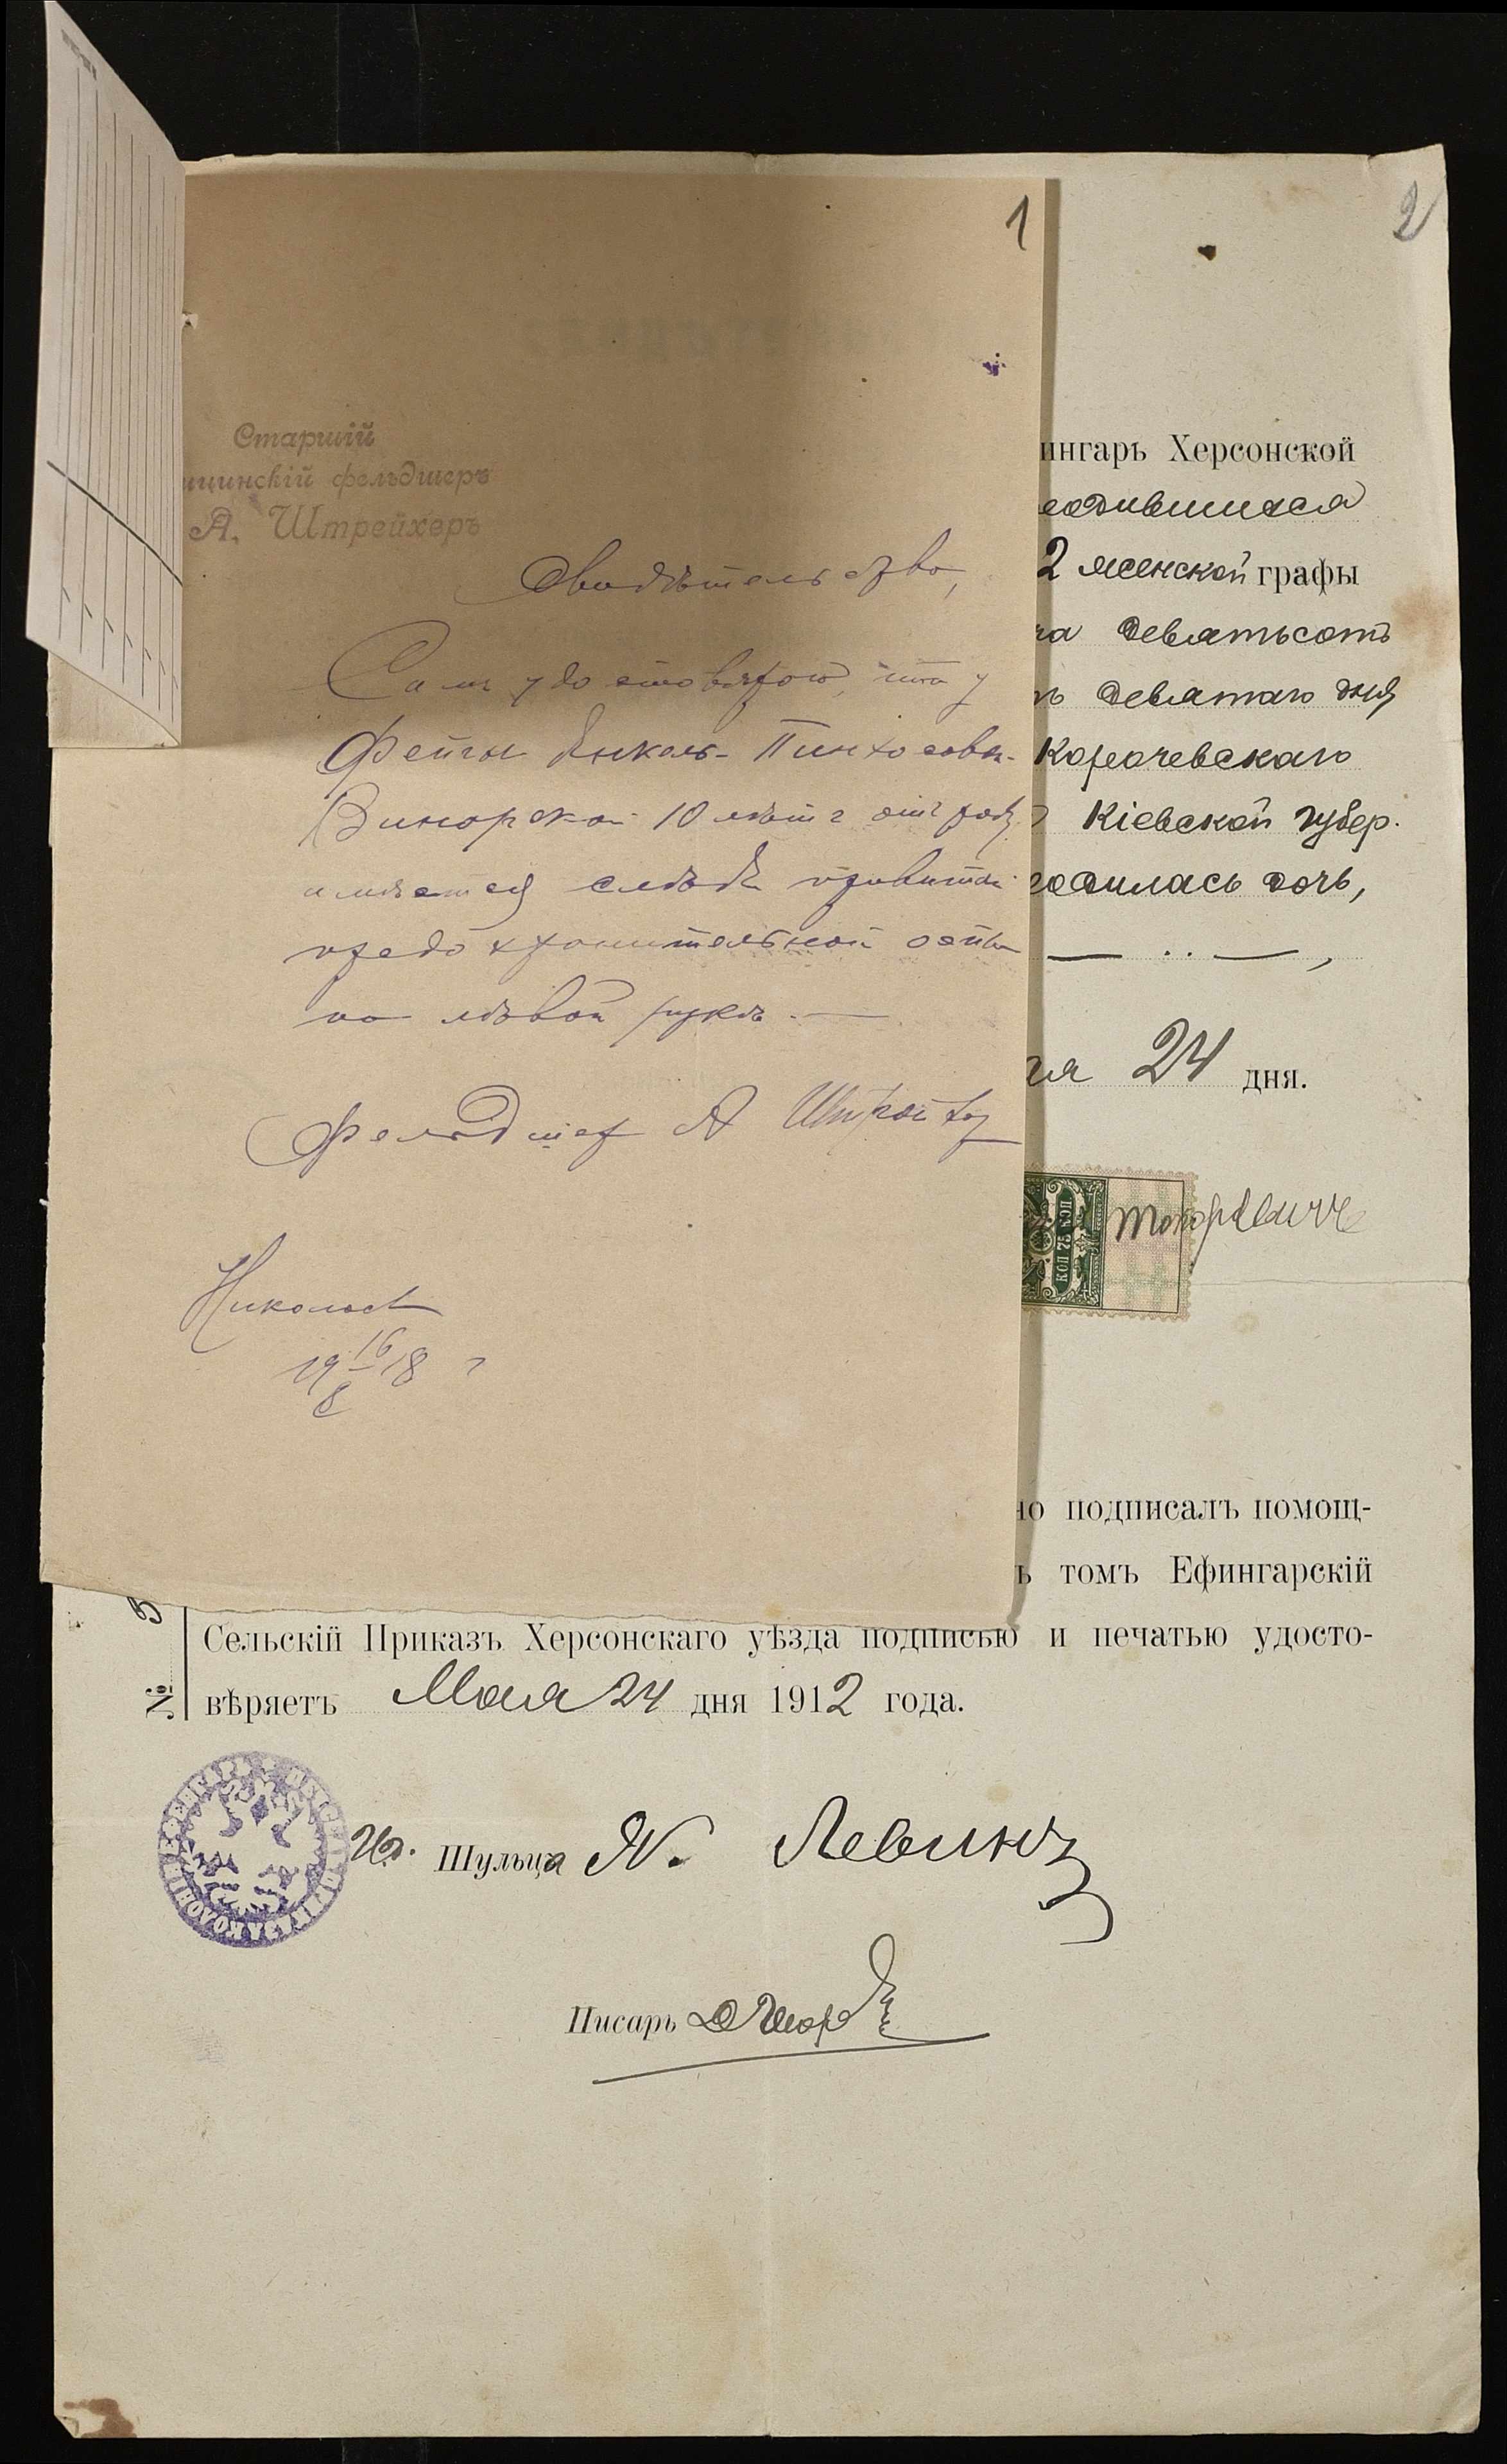 1
2
Старшій
ицинскій фельдшеръ
А. Штрейхеръ
Свидѣтельство,
Самъ удостовѣряю, что у
Фейги Янкель-Пинхосовн.
10 лѣтъ отъ роду
имѣется слѣды привитой
предохранительной оспы
на лѣвой рукѣ.—
Фельдшер А Штрейхер
Николаев
19 16/8 18 г
ингарь Херсонской
родившихся
2 женской графы
ча девятьсотъ
девятаго дня
Корочевскаго
Кіевской губер.
родилась дочь,
— .. — ,
ая 24 дня.
КОП 75 КОП
но подписалъ помощ-
ъ томъ Ефингарскій
Сельскій Приказъ Херсонскаго уѣзда подписью и печатью удосто-
вѣряетъ Мая 24 дня 1912 года.
№ 5
Ид. Шульца Я. Левинъ
Писарь